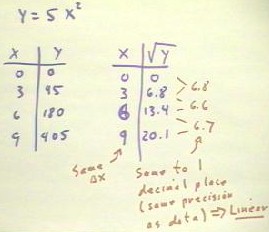 Y = 5 X²
X Y
0 0
3 45
6 180
9 405
X √Y
0 0
3 6.8
6 13.4
9 20.1
6.8
6.6
6.7
Same
ΔX
Same to 1
decimal place
(same precision
as data) ⇒ Linear